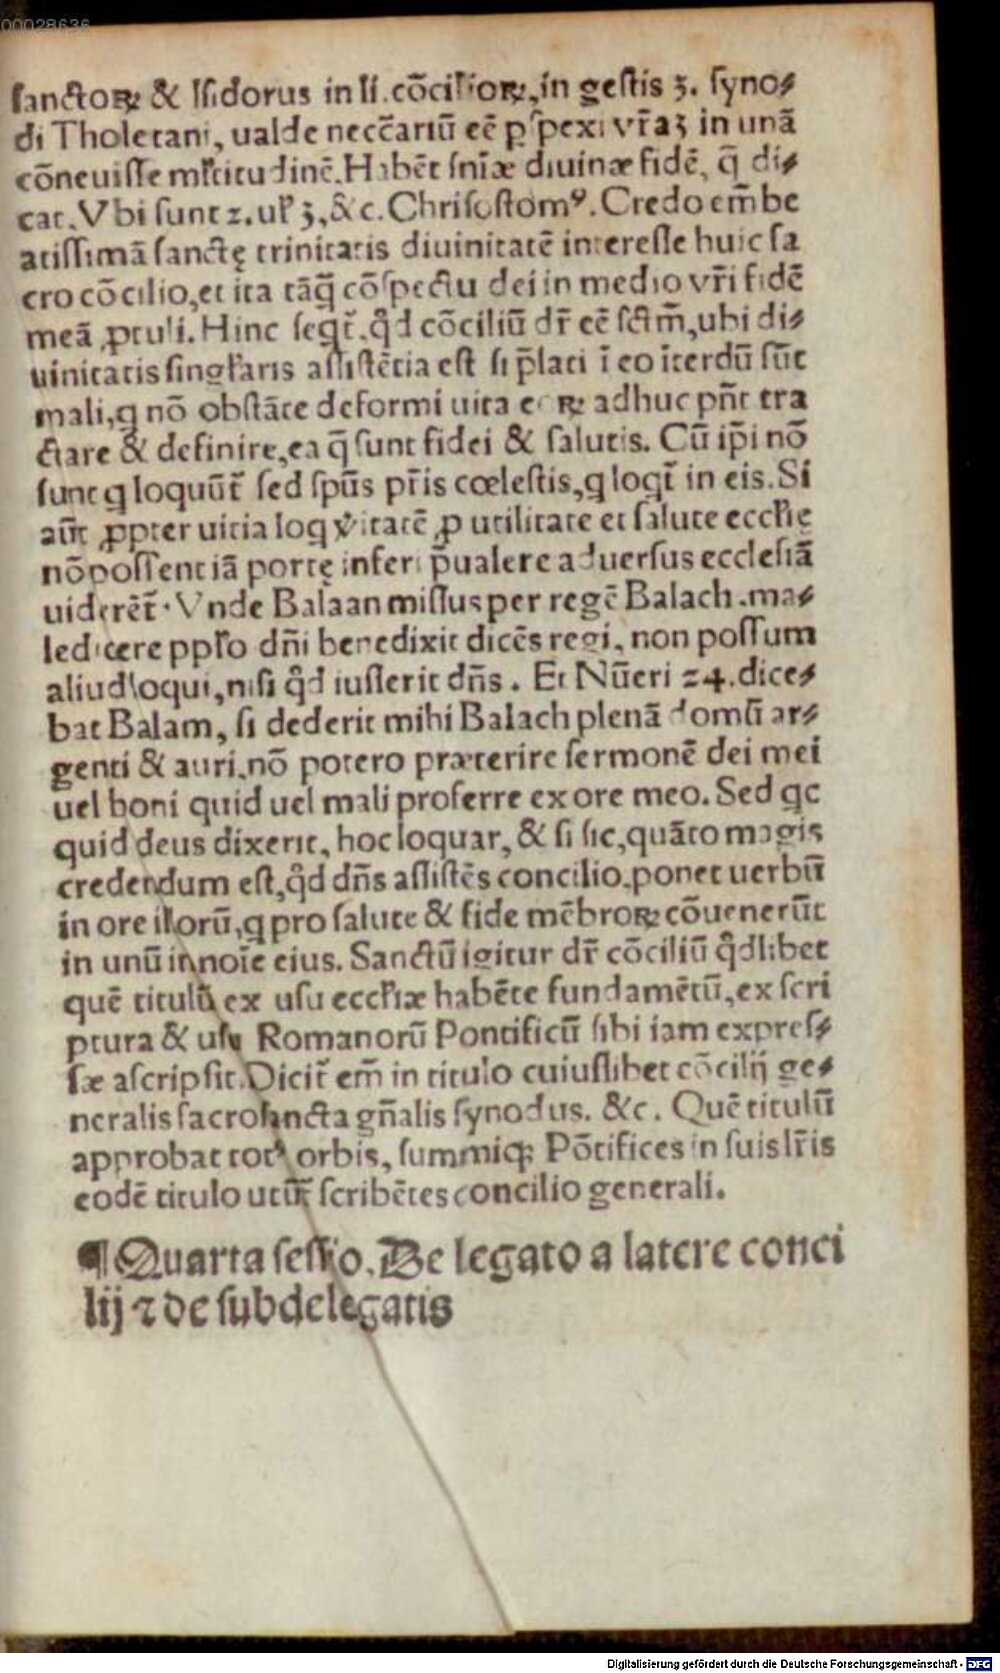 00028636
ſanctoꝝ & Iſidorus in li. cõcilioꝝ, in geſtis 3. ſyno⸗
di Tholetani, ualde neccãriũ eẽ ꝑſpexi vr̃aʒ in unã
cõneuiſſe ml̃titudinẽ. Habẽt ſnĩæ diuinæ fidẽ, q̃ di⸗
cat. Vbi ſunt 2. ul̃ 3, &c. Chriſoſtomꝰ. Credo em̃ be
atiſſimã ſanctę trinitatis diuinitatẽ intereſſe huic ſa
cro cõcilio, et ita tãq̃ cõſpectu dei in medio vr̃i fidẽ
meã ꝓtuli. Hinc ſeqt̃. qd̃ cõciliũ dr̃ eẽ ſctm̃, ubi di⸗
uinitatis ſingl̃aris aſſiſtẽtia eſt ſi p̃lati ĩ eo ĩterdũ ſũt
mali, q nõ obſtãte deformi uita eoꝝ adhuc pñt tra
ctare & definire, ea q̃ ſunt fidei & ſalutis. Cũ ip̃i nõ
ſunt q loquũt̃ ſed ſpũs pr̃is cœleſtis, q loqt̃ in eis. Si
aũt ꝓpter uitia loq v̓itatẽ ꝓ utilitate et ſalute eccl̃ię
nõ poſſent iã portę inferi p̃ualere aduerſus eccleſiã
uiderẽt̃. Vnde Balaan miſſus per regẽ Balach. ma⸗
ledicere ppl̃o dñi benedixit dicẽs regi, non poſſum
aliud loqui, niſi qd̃ iuſſerit dñs. Et Nũeri 24. dice⸗
bat Balam, ſi dederit mihi Balach plenã domũ ar⸗
genti & auri. nõ potero præterire ſermonẽ dei mei
uel boni quid uel mali proferre ex ore meo. Sed qc
quid deus dixerit, hoc loquar, & ſi ſic, quãto magis
credendum eſt, qd̃ dñs aſſiſtẽs concilio. ponet uerbũ
in ore illorũ, q pro ſalute & fide mẽbroꝝ cõuenerũt
in unũ in noĩe eius. Sanctũ igitur dr̃ cõciliũ qd̃libet
quẽ titulũ ex uſu eccl̃iæ habẽte fundamẽtũ, ex ſcri
ptura & uſu Romanorũ Pontificũ ſibi iam expreſ⸗
ſæ aſcripſit. Dicit̃ em̃ in titulo cuiuſlibet cõcilij ge⸗
neralis ſacroſancta gñalis ſynodus. &c. Quẽ titulũ
approbat totꝰ orbis, ſummiqꝫ Põtifices in ſuis lr̃is
eodẽ titulo utũt̃ ſcribẽtes concilio generali.
¶ Quarta ſeſſio. De legato a latere conci
lij ⁊ de ſubdelegatis
Digitalisierung gefördert durch die Deutsche Forschungsgemeinschaft - DFG